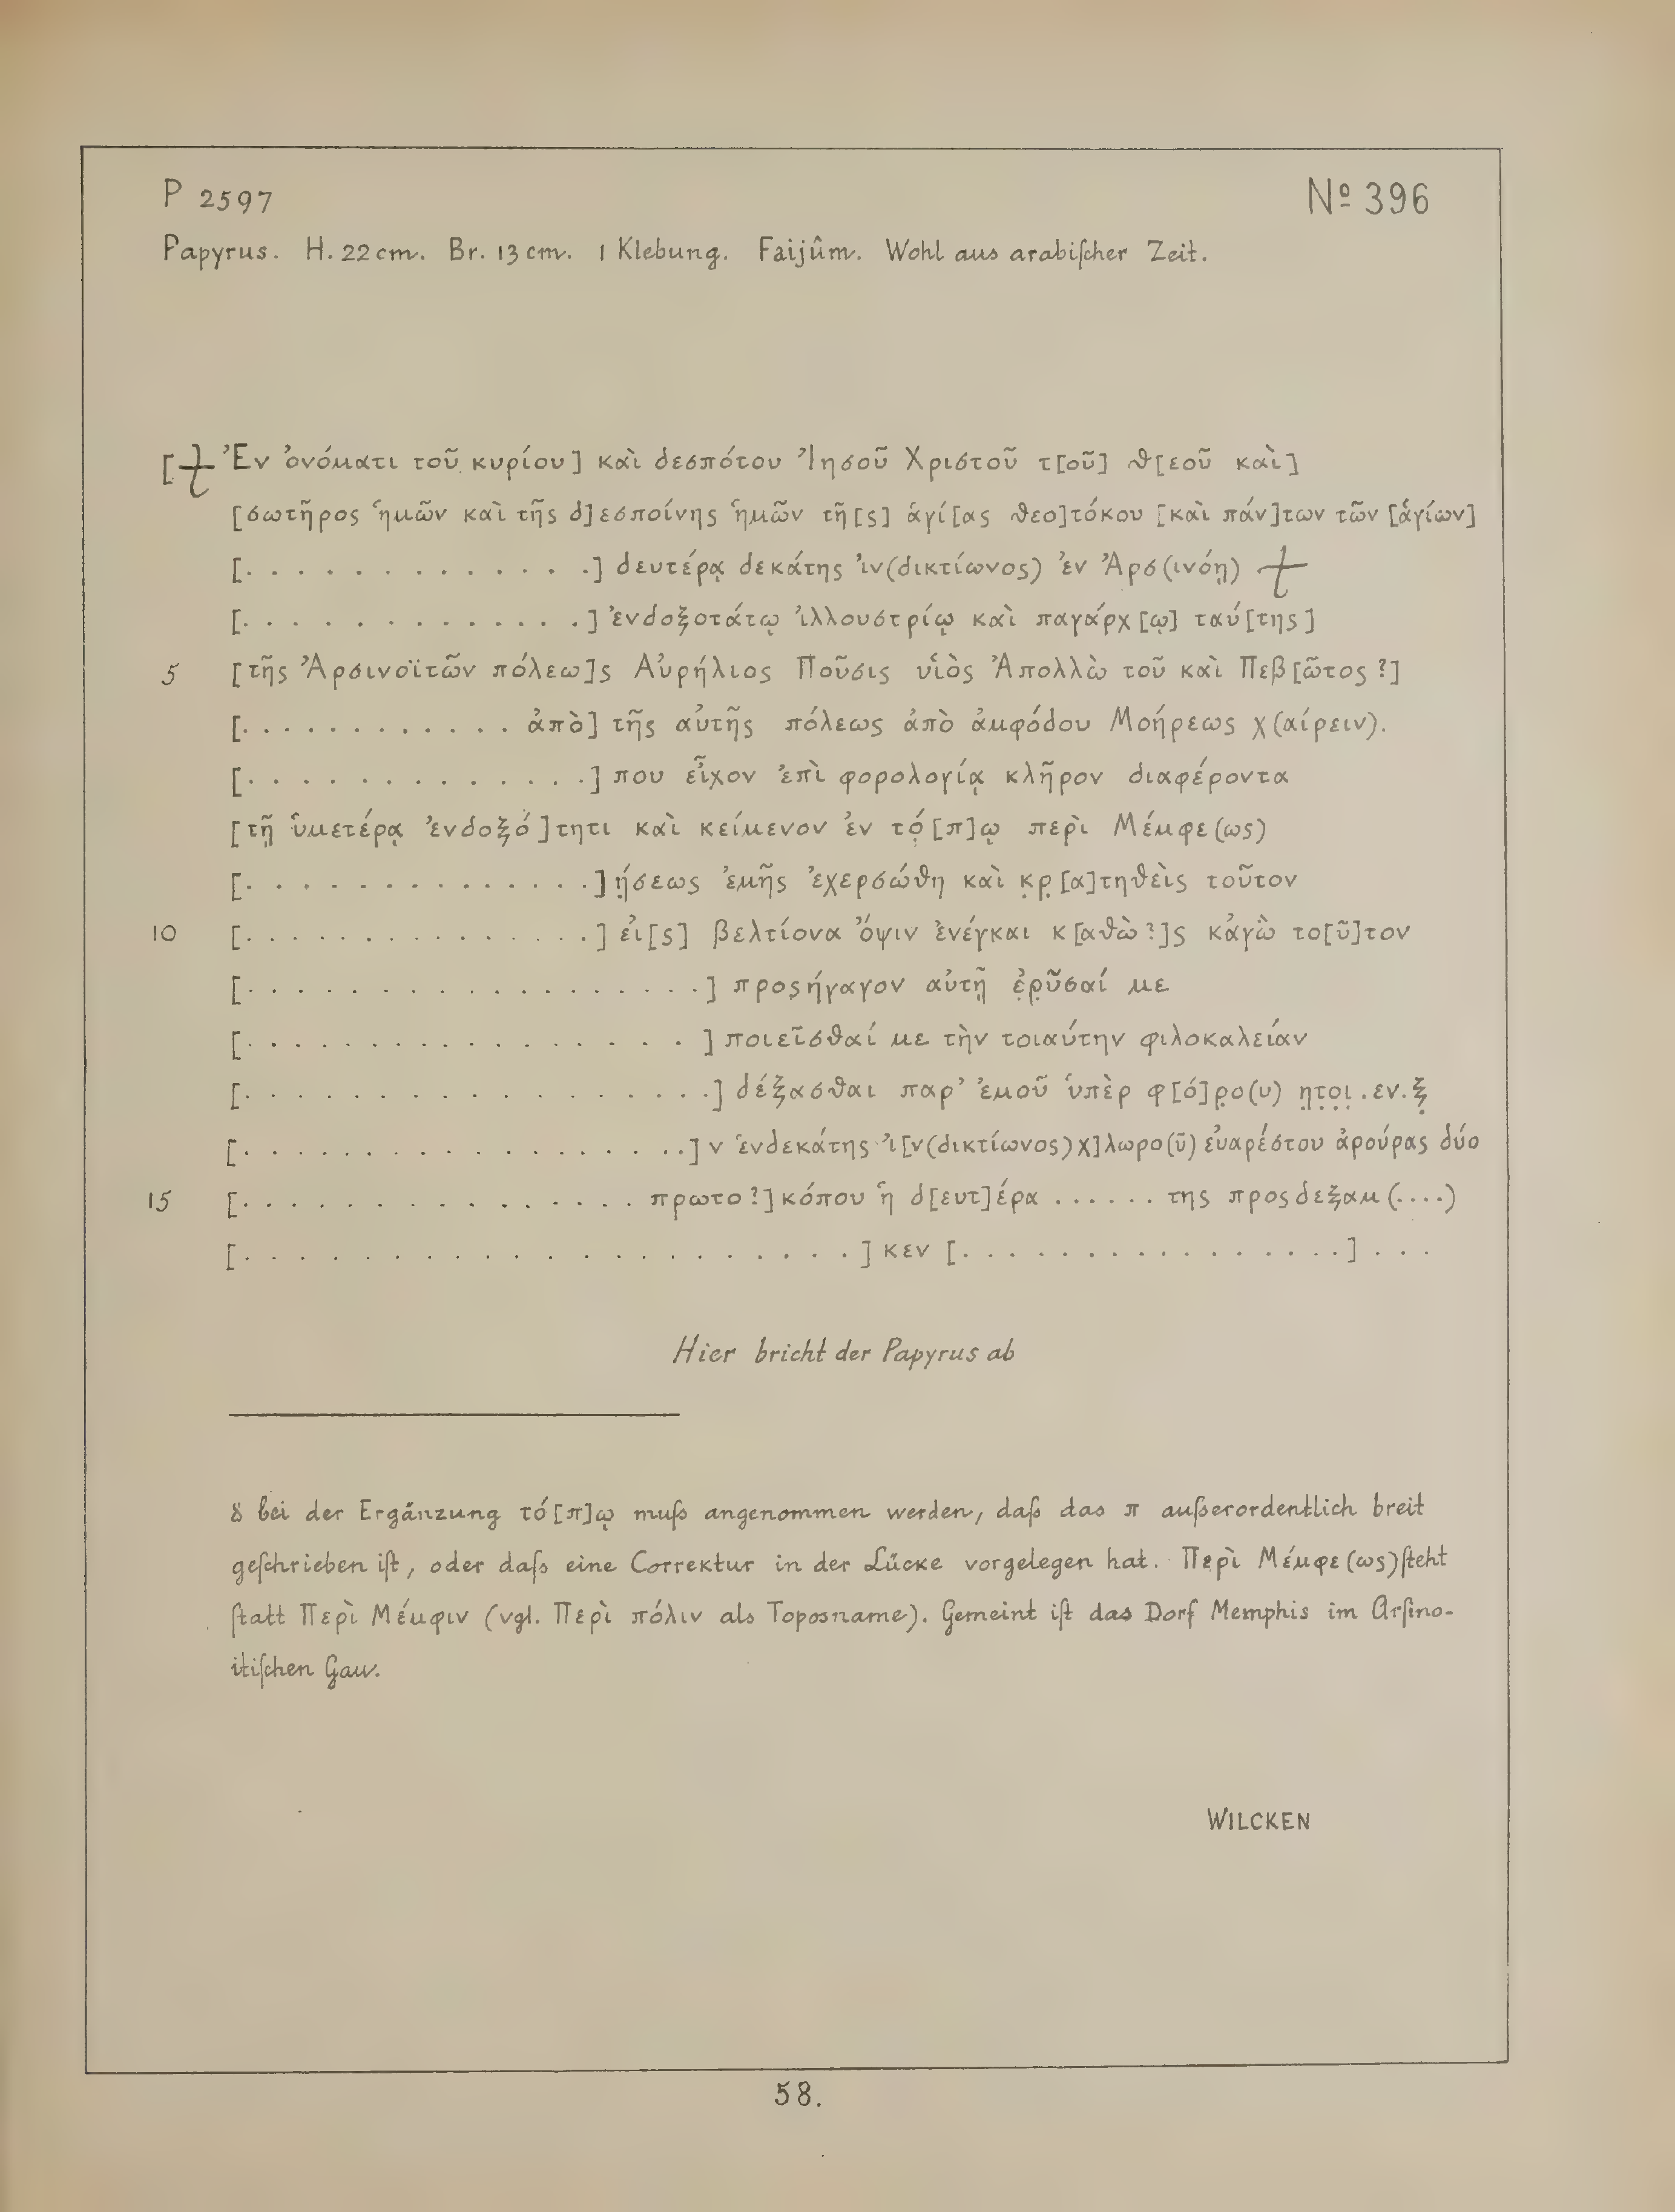 P 2597
Nº 396
Papyrus. H. 22 cm. Br. 13 cm. 1 Klebung. Faijûm. Wohl aus arabiſcher Zeit.
[⳨ Ἐν ὀνόματι τοῦ κυρίου] καὶ δεσπότου Ἰησοῦ Χριστοῦ τ[οῦ] θ[εοῦ καὶ]
[σωτῆρος ἡμῶν καὶ τῆς δ]εσποίνης ἡμῶν τῆ[ς] ἁγί[ας θεο]τόκου [καὶ πάν]των τῶν [ἁγίων]
[. . . . . . . . . . . . . .] δευτέρᾳ δεκάτης ἰν(δικτίωνος) ἐν Ἀρσ(ινόῃ) ⳨
[. . . . . . . . . . . . .] ἐνδοξοτάτῳ ἰλλουστρίῳ καὶ παγάρχ[ῳ] ταύ[της]
5 [τῆς Ἀρσινοϊτῶν πόλεω]ς Αὐρήλιος Ποῦσις υἱὸς Ἀπολλὼ τοῦ καὶ Πεβ[ῶτος ?]
[. . . . . . . . . . . . ἀπὸ] τῆς αὐτῆς πόλεως ἀπὸ ἀμφόδου Μοήρεως χ(αίρειν).
[. . . . . . . . . . . . . .] που εἶχον ἐπὶ φορολογίᾳ κλῆρον διαφέροντα
[τῇ ὑμετέρᾳ ἐνδοξό]τητι καὶ κείμενον ἐν τό̣[π]ῳ περὶ Μέμφε(ως)
[. . . . . . . . . . . . . .] ή̣σεως ἐμῆς ἐχερσώθη καὶ κ̣ρ̣[α]τηθεὶς τοῦτον
10 [. . . . . . . . . . . . . . .] εἰ[ς] βελτίονα ὄψιν ἐνέγκαι κ[αθὼ ?]ς κἀγὼ το[ῦ]τον
[. . . . . . . . . . . . . . . . . . .] προςήγαγον αὐτῇ ἐ̣ρ̣ῦσαί με
[. . . . . . . . . . . . . . . . .] ποιεῖσθαί με τὴν τοιαύτην φιλοκαλείαν
[. . . . . . . . . . . . . . . . . .] δέξασθαι παρ’ ἐμοῦ ὑπὲρ φ[ό]ρ̣ο(υ) η̣τ̣ο̣ι̣ . εν . ξ̣
[. . . . . . . . . . . . . . . . . . .] ν ἑνδεκάτης ἰ[ν(δικτίωνος) χ]λωρο(ῦ) εὐαρέστου ἀρούρας δύο
15 [. . . . . . . . . . . . . . . . πρωτο ?]κόπου ἢ δ[ευτ]έρα . . . . . . της προςδεξαμ(. . . .)
[. . . . . . . . . . . . . . . . . . . . . . .] κεν [. . . . . . . . . . . . . . . .] . . .
Hier bricht der Papyrus ab
8 bei der Ergänzung τό[π]ῳ muſs angenommen werden, daſs das π auſserordentlich breit
geſchrieben iſt, oder daſs eine Correktur in der Lücke vorgelegen hat. Περὶ Μέμφε(ως) ſteht
ſtatt Περὶ Μέμφιν (vgl. Περὶ πόλιν als Toposname). Gemeint iſt das Dorf Memphis im Arſino-
itiſchen Gau.
WILCKEN
58.